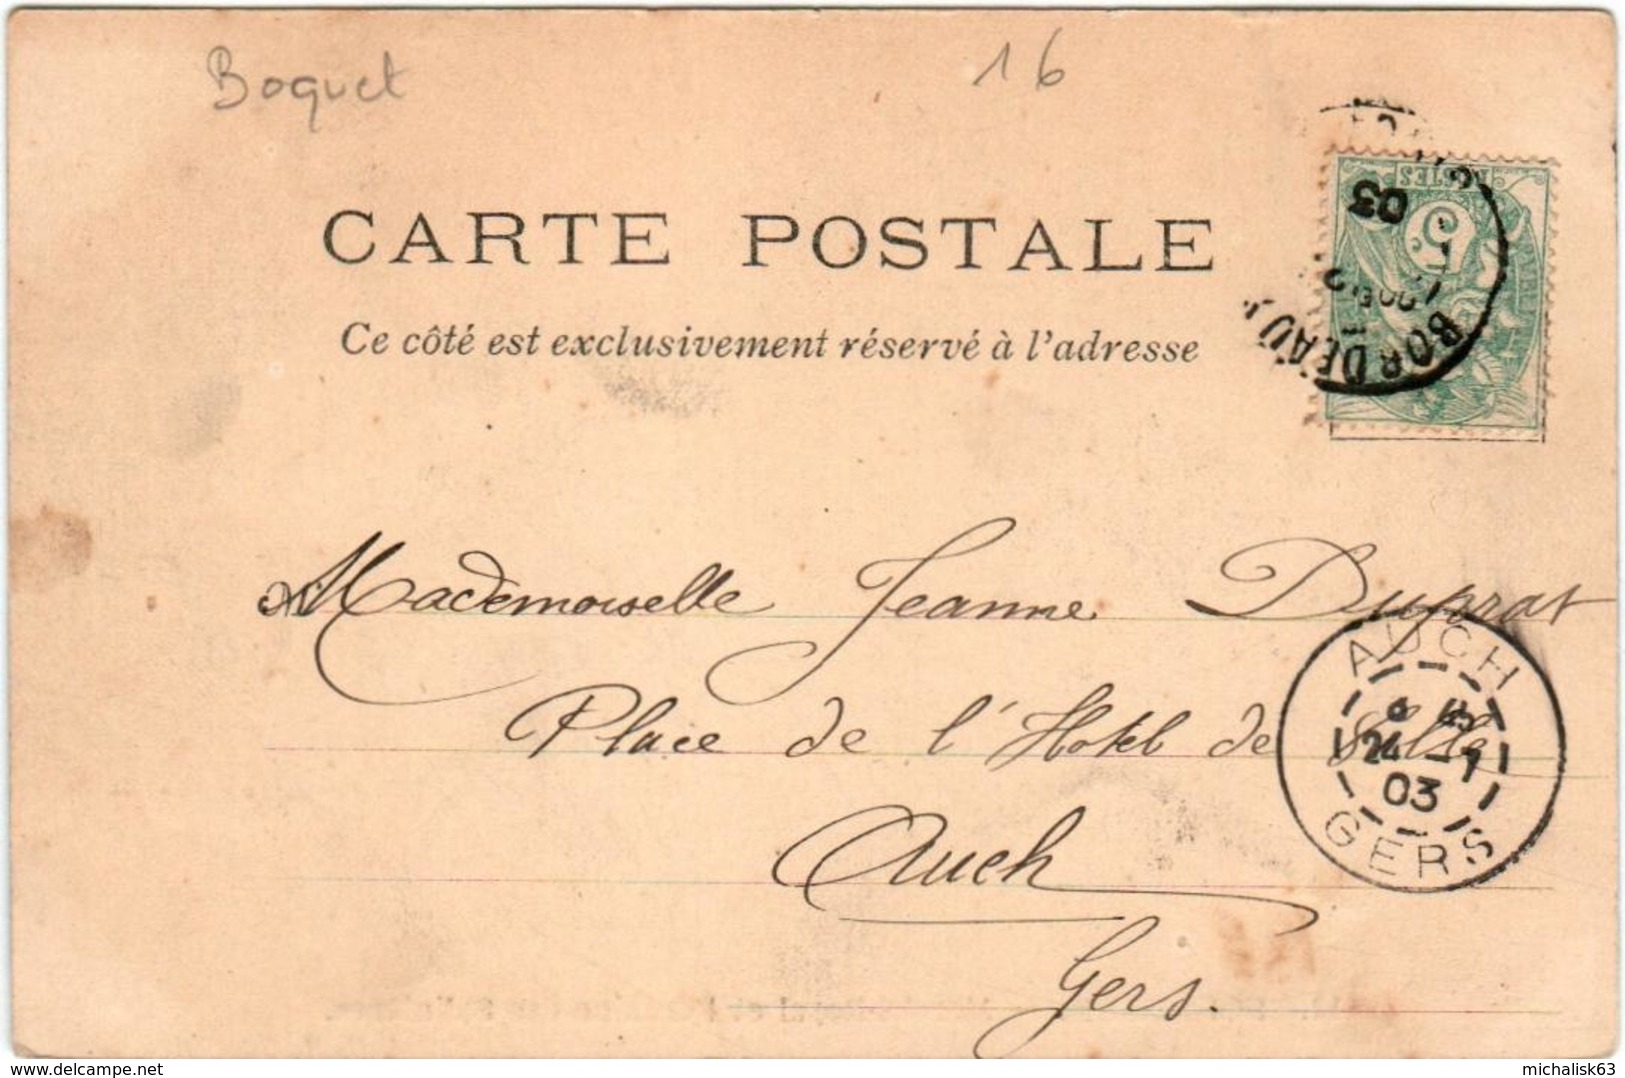 Boquet
16
CARTE POSTALE
Ce côté est exclusivement réservé à l'adresse
POSTES
5
03
BORDEAU
Mademoiselle Jeanne Duprat
Place de l'Hotel de Ville
Auch
Gers.
AUCH
24 -7
03
GERS
www.delcampe.net
michalisk63